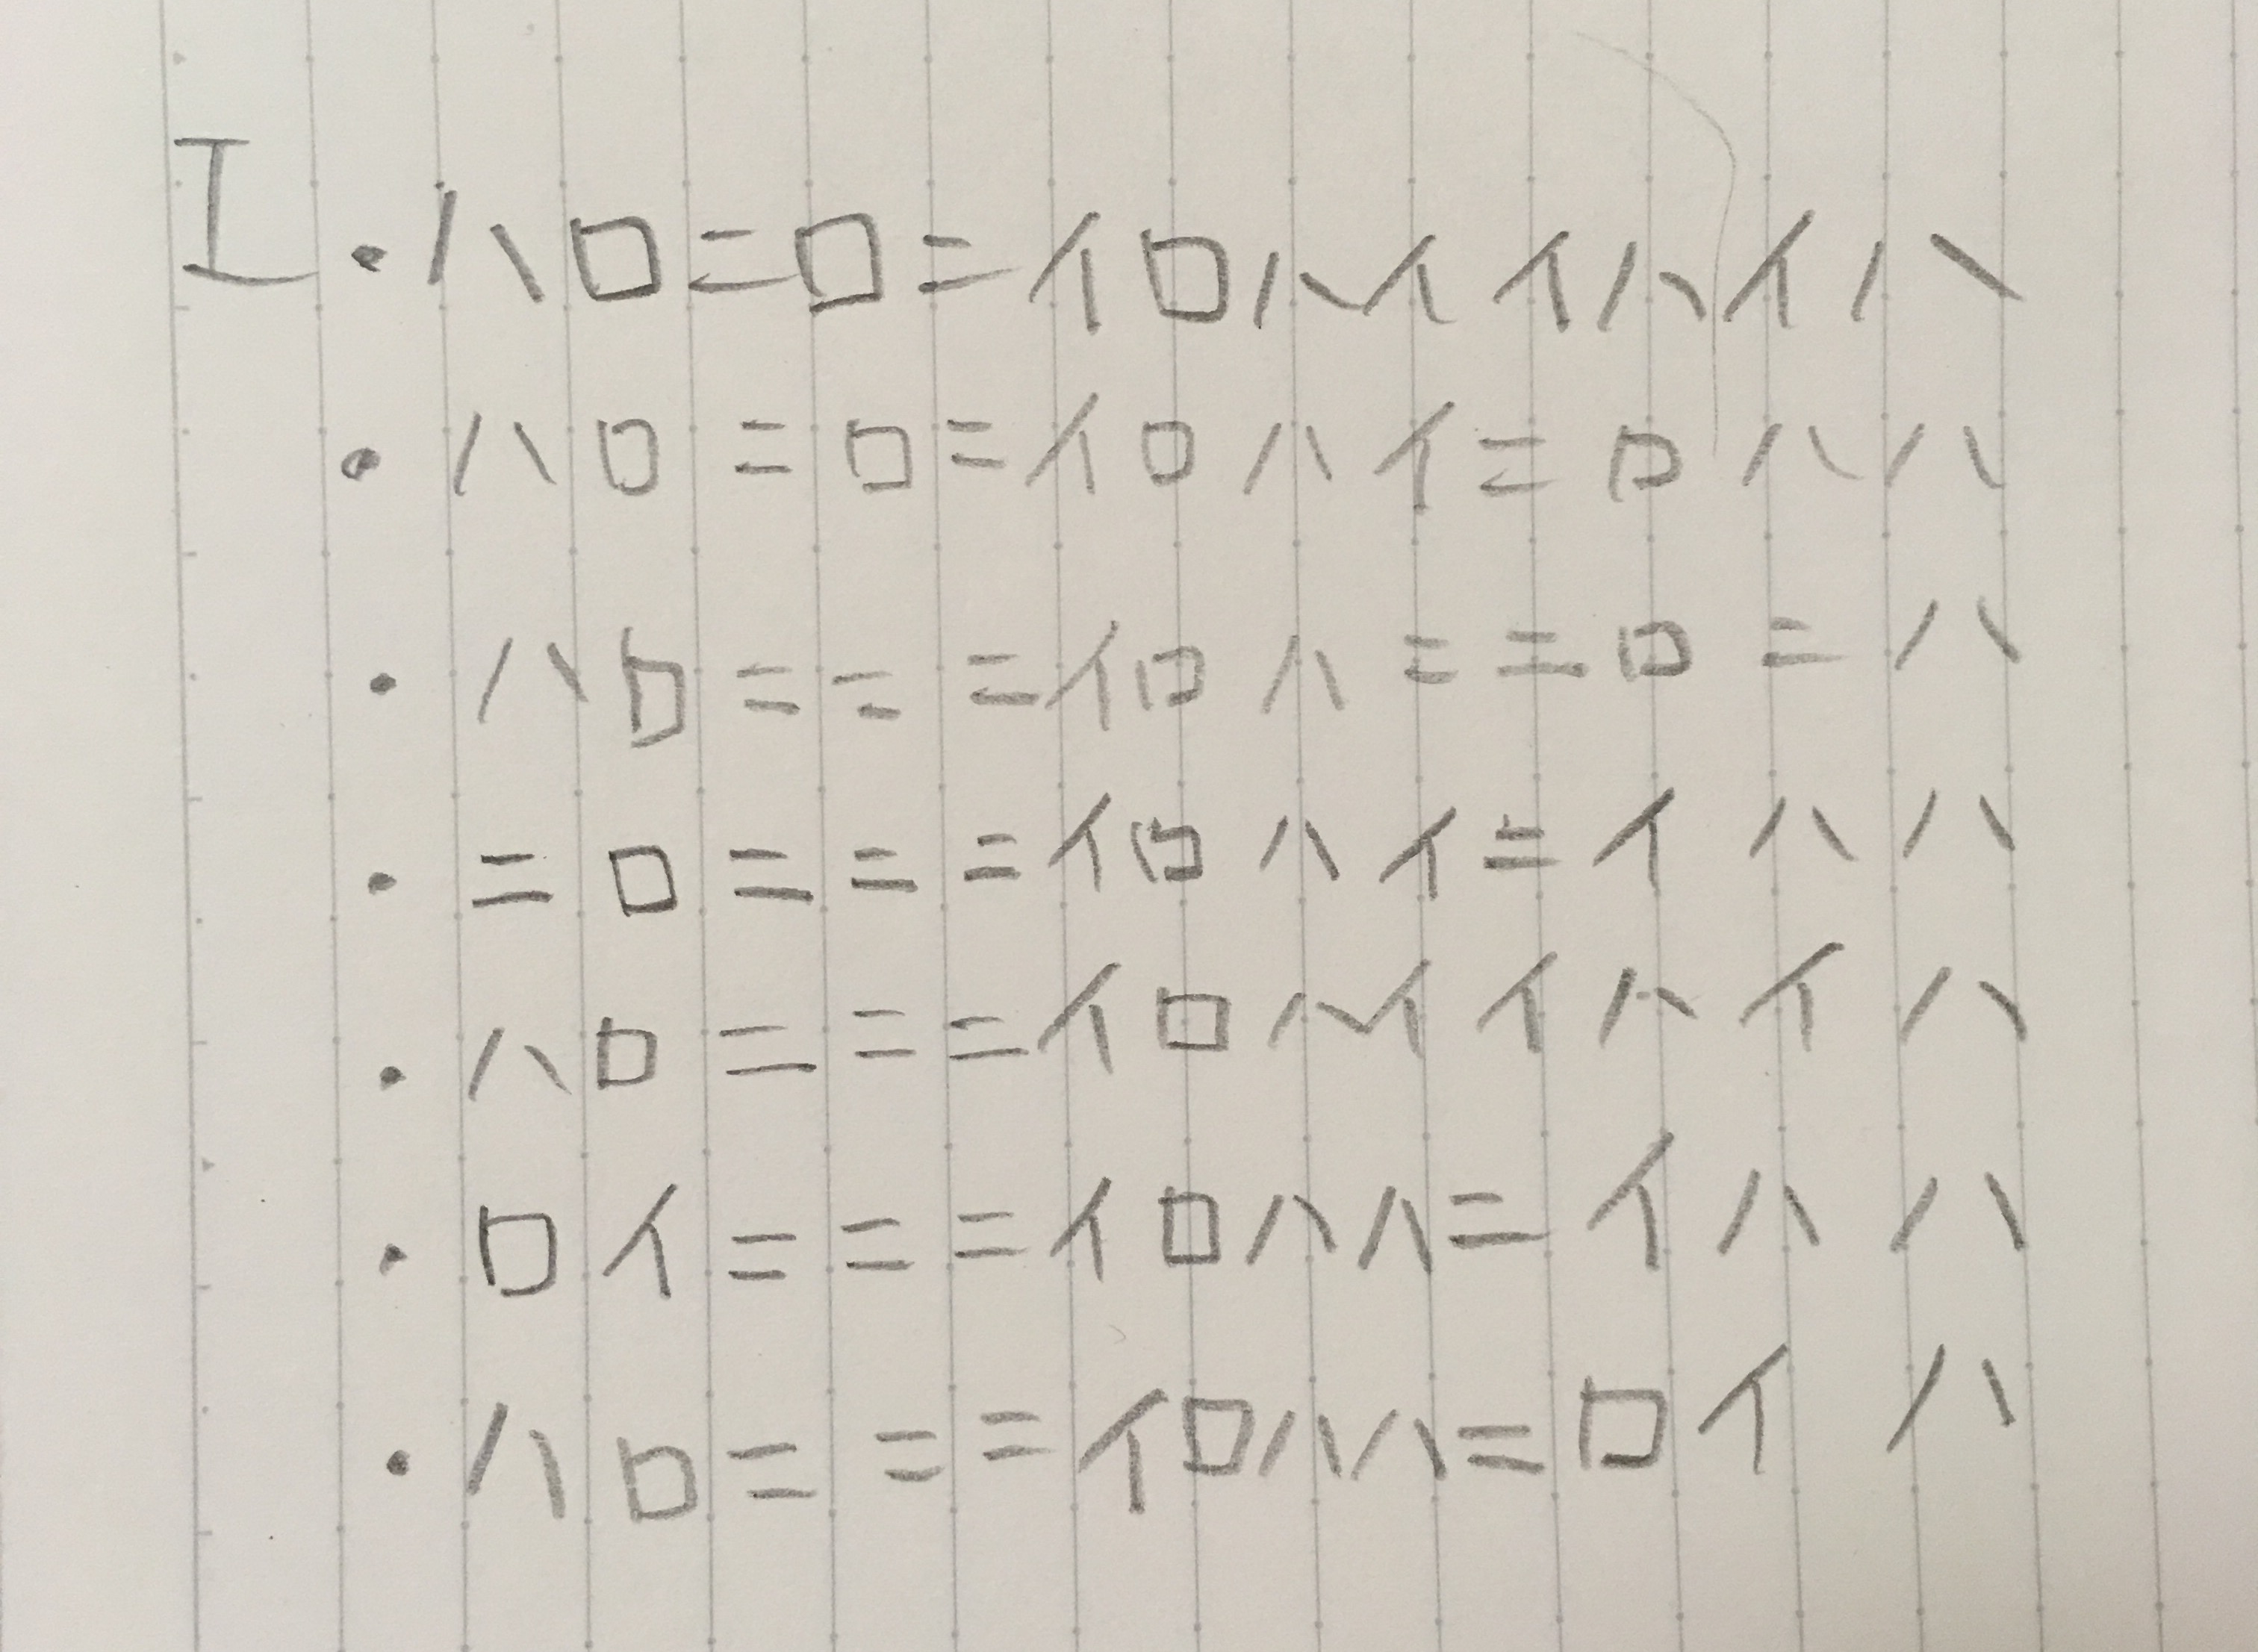 エ・ハロニロニイロハイイハイハ
・ハロニロニイロハイニロハハ
・ハロニニニイロハニニロニハ
・ニロニニニイロハイニイハハ
・ハロニニニイロハイイハイハ
・ロイニニニイロハハニイハハ
・ハロニニニイロハハニロイハ